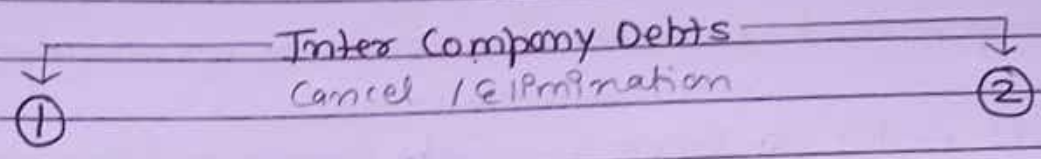 Inter Company Debts
Cancel / Elimination
① ②